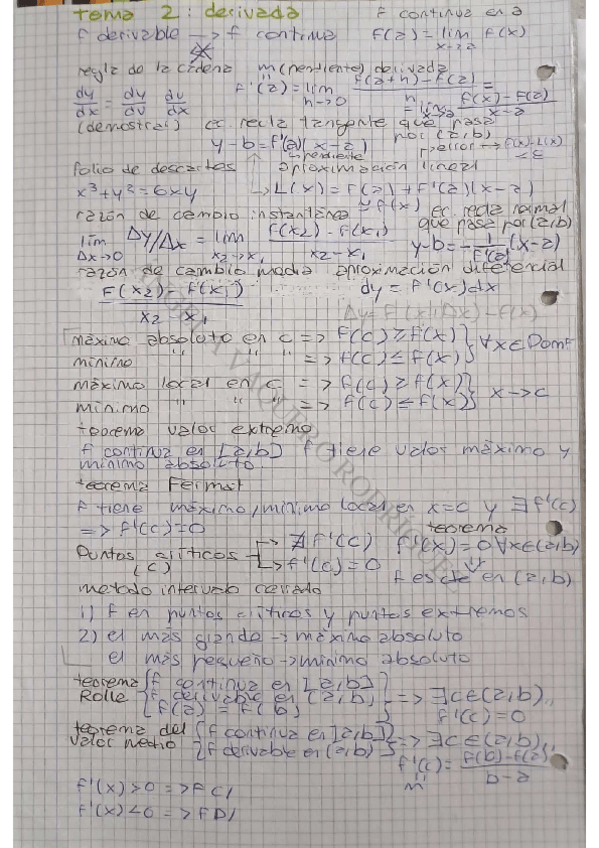 tema 2: derivada
f continua en a
f derivable → f continua
f(a) = lim f(x)
x→a
regla de la cadena
m(pendiente) derivada
dy/dx = dy/du du/dx
f'(a) = lim h→0 f(a+h) - f(a) / h =
= lim x→a f(x) - f(a) / x-a
(demostrar)
ec recta tangente que pasa por (a,b)
y-b = f'(a)(x-a)
pendiente
error → f(x)-L(x) ≤ ε
folio de descartes
aproximación lineal
x³+y³=6xy
L(x) = f(a) + f'(a)(x-a)
≈ f(x)
razón de cambio instantánea
ec recta normal que pasa por (a,b)
lim Δx→0 Δy/Δx = lim x₂→x₁ f(x₂) - f(x₁) / x₂-x₁
y-b = -1/f'(a) (x-a)
razón de cambio media
aproximación diferencial
f(x₂) - f(x₁) / x₂ - x₁
dy = f'(x)dx
Δy = f(x+Δx) - f(x)
máximo absoluto en c => f(c) ≥ f(x) } ∀x∈Domf
mínimo " " " => f(c) ≤ f(x)
máximo local en c => f(c) ≥ f(x) } x→c
mínimo " " " => f(c) ≤ f(x)
teorema valor extremo
f continua en [a,b] f tiene valor máximo y
mínimo absoluto
teorema Fermat
f tiene máximo/mínimo local en x=c y ∃f'(c)
=> f'(c)=0
teorema
f'(x) = 0 ∀x∈(a,b)
⇓
f es cte en (a,b)
Puntos críticos (c) → ∄ f'(c)
→ f'(c) = 0
metodo intervalo cerrado
1) f en puntos críticos y puntos extremos
2) el más grande → máximo absoluto
el más pequeño → mínimo absoluto
teorema Rolle { f continua en [a,b]
f derivable en (a,b)
f(a) = f(b) } => ∃c∈(a,b)
f'(c) = 0
teorema del valor medio { f continua en [a,b]
f derivable en (a,b) } => ∃c∈(a,b)
f'(c) = f(b) - f(a) / b-a
m
f'(x)>0 => f C/
f'(x)<0 => f D/